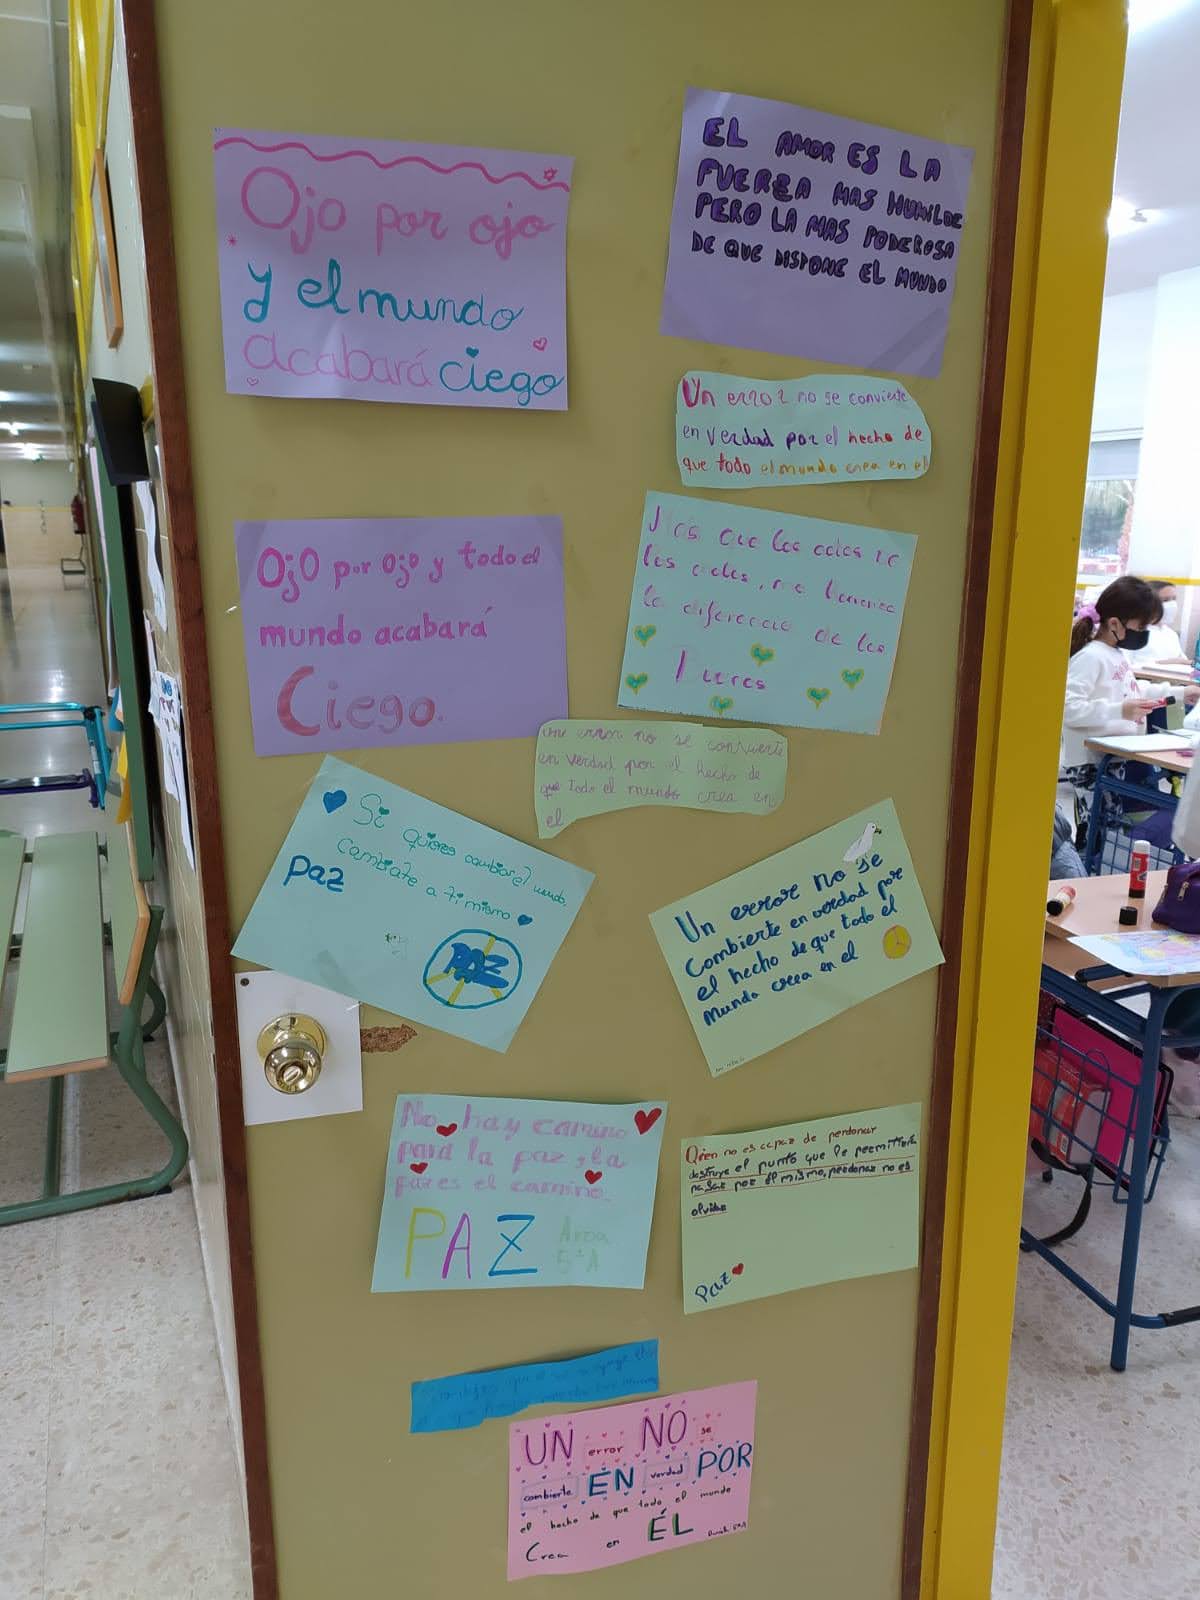 Ojo por ojo
y el mundo
acabará ciego
EL AMOR ES LA
FUERZA MAS HUMILDE
PERO LA MAS PODEROSA
DE QUE DISPONE EL MUNDO
Un error no se convierte
en verdad por el hecho de
que todo el mundo crea en el
Ojo por ojo y todo el
mundo acabará
Ciego.
los
la diferencia de los
error no se convierte
en verdad por el hecho de
que todo el mundo crea en
el
Si quieres cambiar el mundo,
cambiate a ti mismo
Paz
PAZ
Un error no se
combierte en verdad por
el hecho de que todo el
mundo crea en el
No hay camino
para la paz, la
paz es el camino.
PAZ
5ºA
Qien no es capaz de perdonar
destruye el punto que le
pasar por el mismo, perdonar no es
olvidar
Paz
UN error NO se
combierte EN verdad POR
el hecho de que todo el mundo
Crea en ÉL